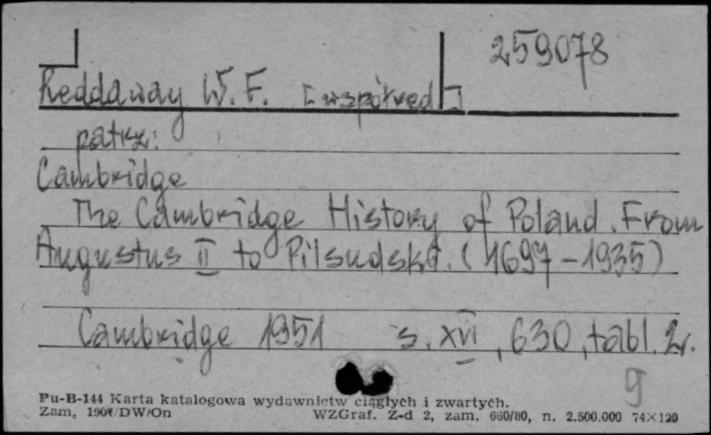 259078
Reddaway W. F. [współred]
patrz:
Cambridge
The Cambridge History of Poland. From
Augustus II to Pilsudski. (1697-1935)
Cambridge 1951 s. XVI, 630, tabl. 2.
g
Pu-B-144 Karta katalogowa wydawnictw ciągłych i zwartych.
Zam, DW/On WZGraf. Z-d 2, zam. 660/80, n. 2.500.000 74×120